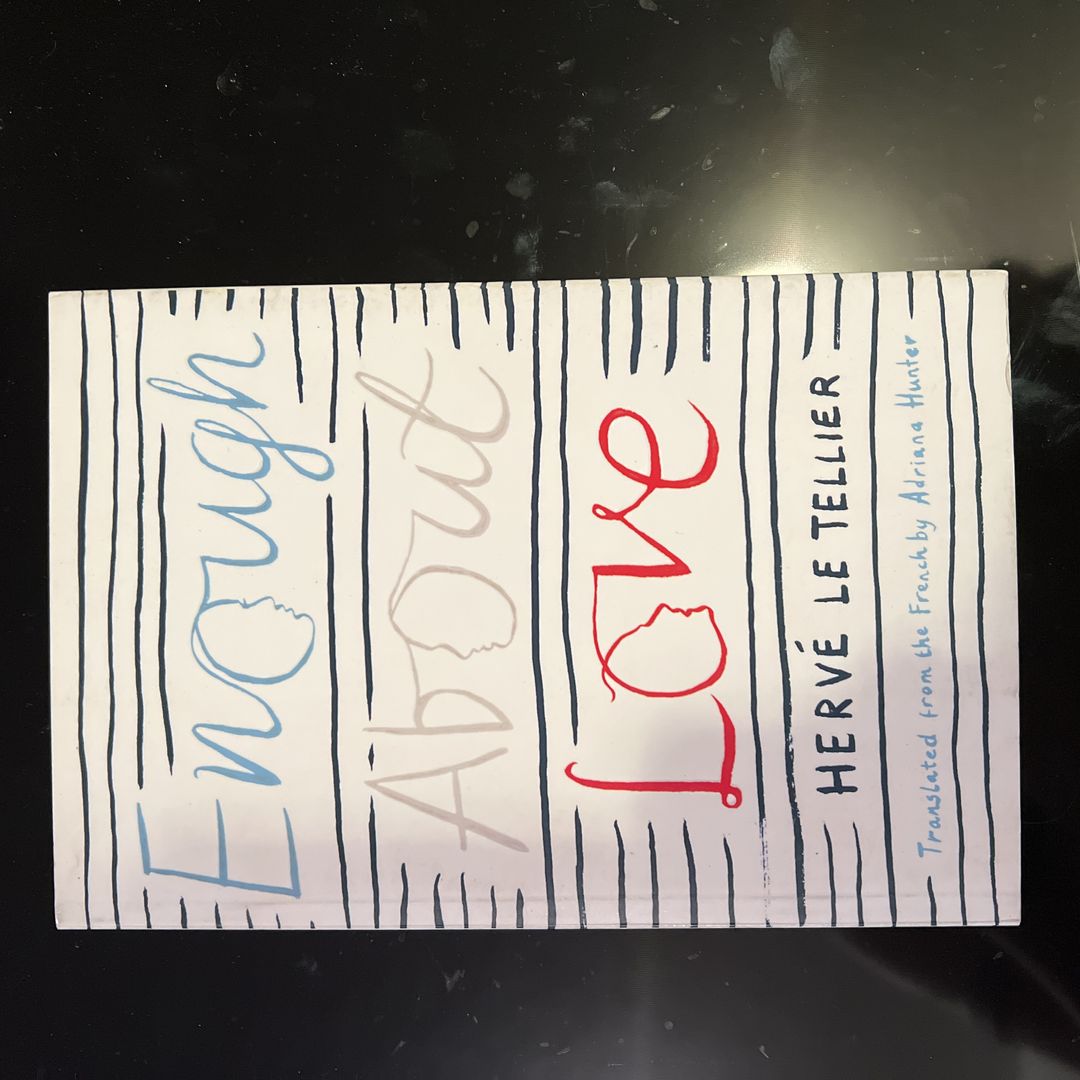 Enough
About
Love
HERVÉ LE TELLIER
Translated from the French by Adriana Hunter